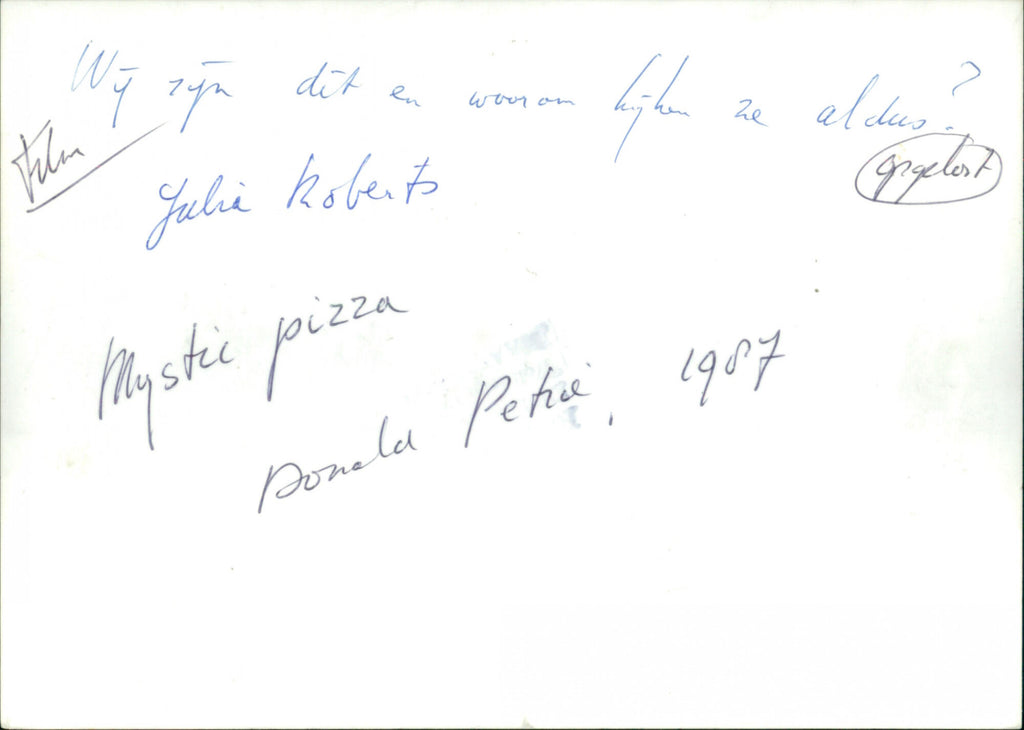 Wij zijn dit en waarom kijken ze aldus?
Film
opgelost
Julia Roberts
Mystic pizza
Donald Petrie, 1987